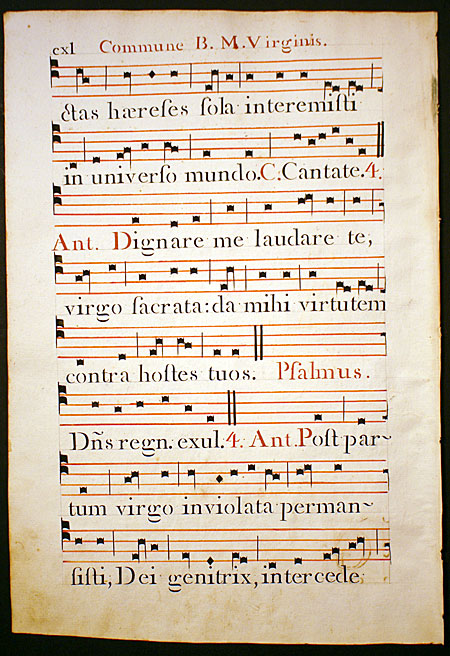 cxl Commune B. M. Virginis.
ctas hæreſes ſola interemiſti
in univerſo mundo. C. Cantate. 4.
Ant. Dignare me laudare te,
virgo ſacrata: da mihi virtutem
contra hoſtes tuos. Pſalmus.
Dn̄s regn. exul. 4. Ant. Poſt par~
tum virgo inviolata perman~
ſiſti, Dei genitrix, intercede